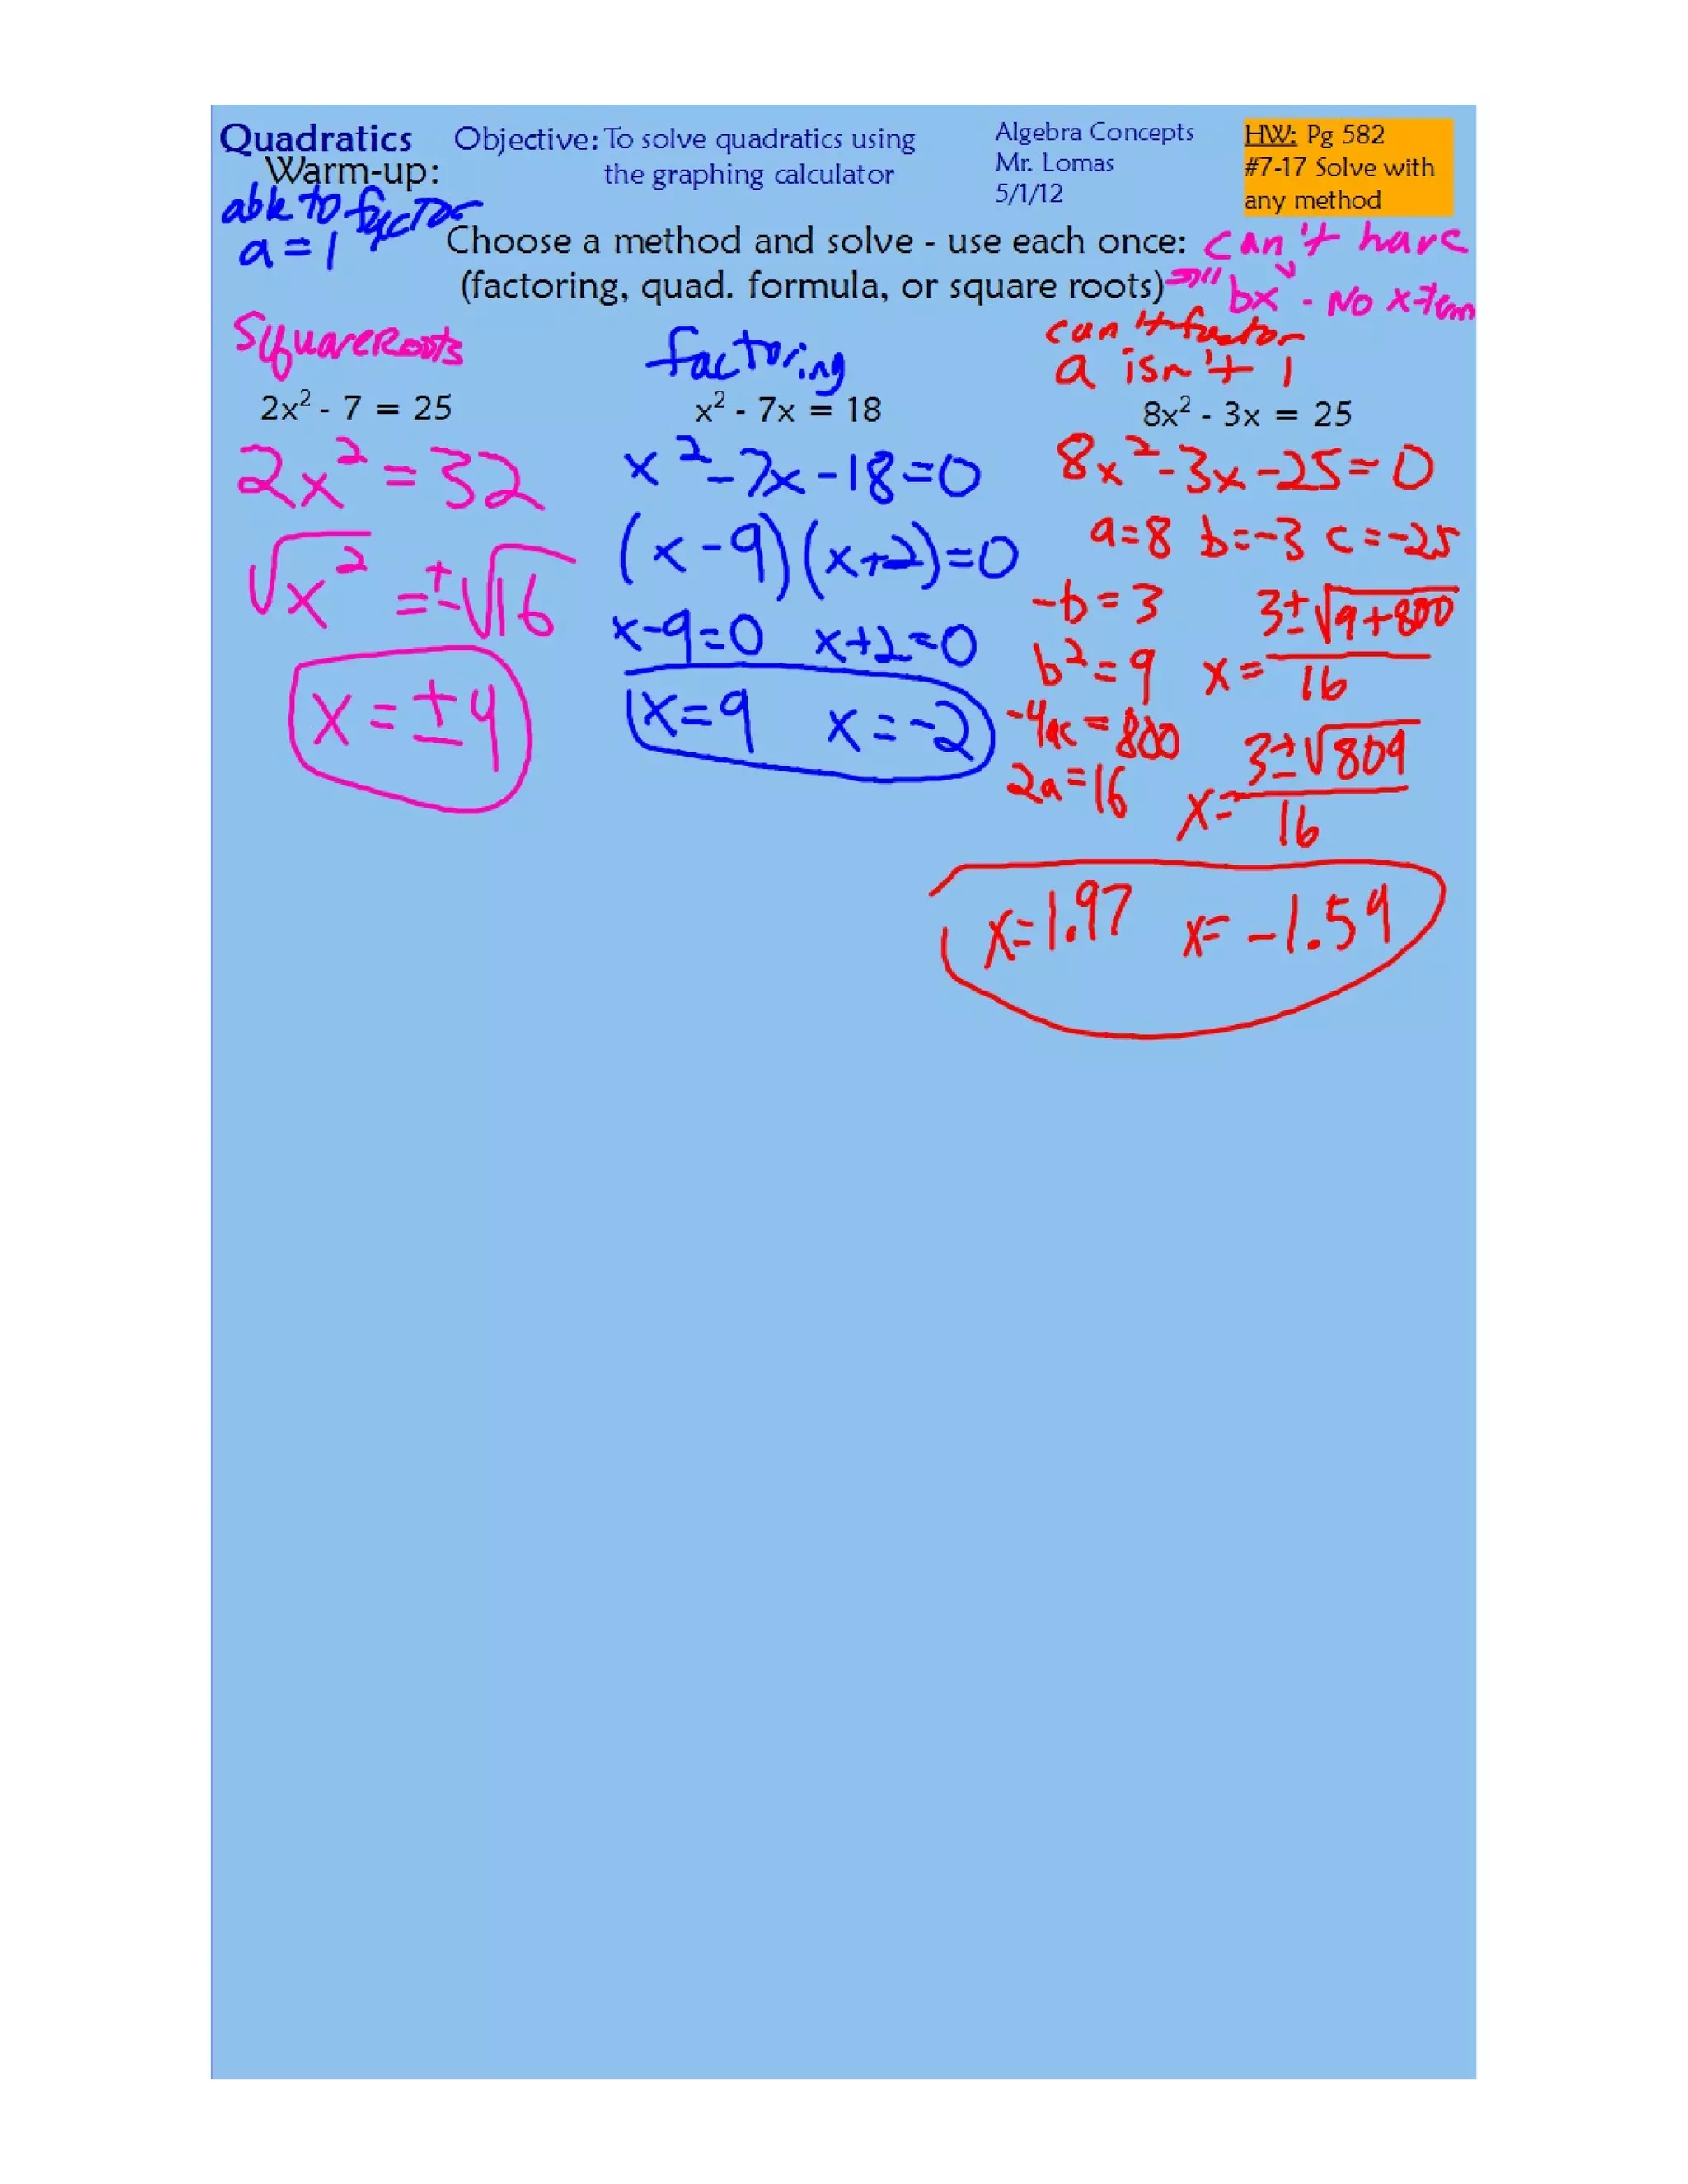 Quadratics
Objective: To solve quadratics using
the graphing calculator
Algebra Concepts
Mr. Lomas
5/1/12
HW: Pg 582
#7-17 Solve with
any method
Warm-up:
able to factor
a = 1
Choose a method and solve - use each once:
(factoring, quad. formula, or square roots)
can't have
"bx" - No x-term
Square Roots
2x² - 7 = 25
2x² = 32
√x² = ±√16
x = ±4
factoring
x² - 7x = 18
x² - 7x - 18 = 0
(x - 9)(x + 2) = 0
x - 9 = 0 x + 2 = 0
x = 9 x = -2
can't factor
a isn't 1
8x² - 3x = 25
8x² - 3x - 25 = 0
a = 8 b = -3 c = -25
-b = 3
b² = 9
-4ac = 800
2a = 16
3 ± √9 + 800
x =
16
3 ± √809
x =
16
x = 1.97 x = -1.59